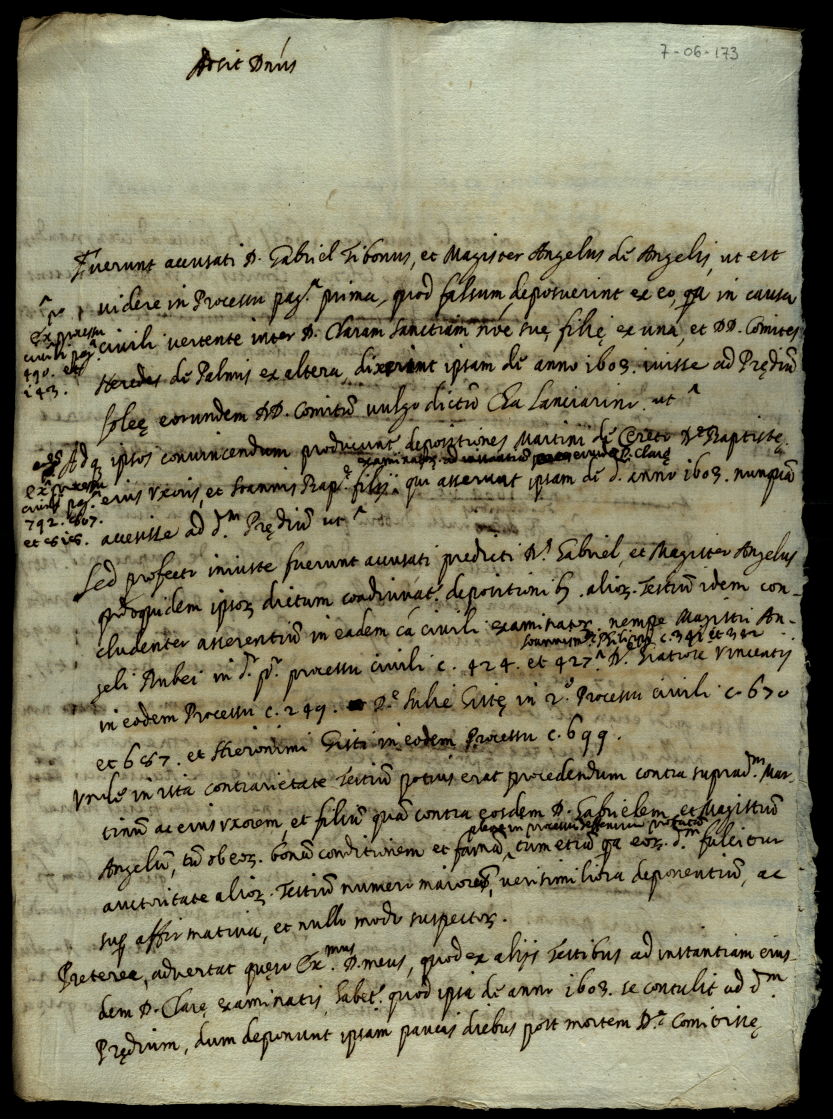 Adsit Dnus
7-06-173
Fuerunt accusati D. Gabriel Tibonus, et Magister Angelus de Angelis, ut est
videre in Processu pag.ª prima, quod falsum deposuerint ex eo, qa in causa
civili vertente inter D. Claram Sanctiam sive suę filię ex una, et DD. Comites
Heredes de Palmis ex altera, dixerint ipsam de anno 1603. ivisse ad Prędiũ
Soleę eorundem DD. Comitũ vulgo dictũ Cha Lanciarini. ut ^
^ pº
Ex processu
civili pag.ª
490. et
143.
Ad ipsos convincendum producunt depositiones Martini de Cereto Dę Baptistę
examinator. ad instantiã eiusd. D. Clarę
eius uxoris, et Ioannis Bap.ę filij: qui asserunt ipsam de d. anno 1603. nunquã
accessisse ad d.m Prędiũ ut ^
Ex processu
civili pag.ª
792. 807.
et 818.
Sed profecto iniuste fuerunt accusati predicti D. Gabriel, et Magister Angelus
quãdoquidem ipsoꝝ dictum coadiuvat. depositionibꝫ alioꝝ Testiũ idem con-
cludenter asserentiũ in eadem cã civili examinatoꝝ, nempe Magistri An-
Ioannini Philippi c. 341 et 342
geli Rubei in d. pº. processu civili c. 424. et 427. Dę Gratiore Vincentij
in eodem Processu c. 249. Dę Iulię Gistę in 2º Processu civili c. 670
et 687. et Hieronimi Gisti in eodem Processu c. 699.
Unde in ista contrarietate Testiũ potius erat procedendum contra suprad.m Mar-
tinũ ac eius uxorem, et filium quã contra eosdem D. Gabrielem, et Magistrũ
Angelũ, tũ ob eoꝝ. bonã conditionem et famã, ^ tum etiã qa eoꝝ. d.m fulcitur
auctoritate alioꝝ. Testiũ numeri maioris, verisimiliora deponentiũ, ac
sup affirmativa, et nullo modo suspectoꝝ.
Preterea, advertat quęso Ex.mus D. meus, quod ex alijs Testibus ad instantiam eius-
dem D. Clarę examinatis, habet. quod ipsa de anno 1603. se contulit ad d.m
Prędium, dum deponunt ipsam paucis diebus post mortem D.ę Comitissę